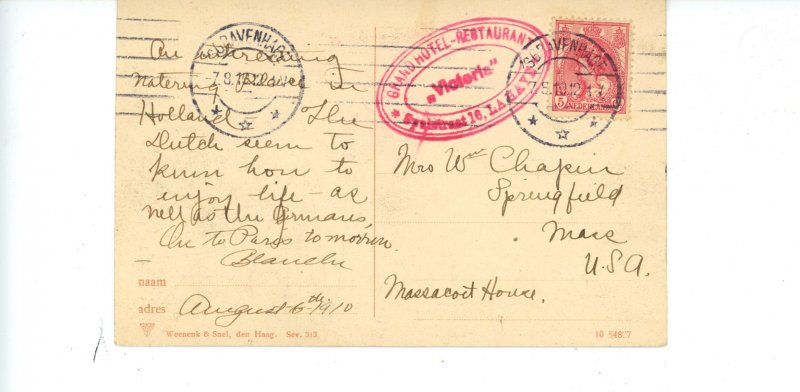 An interesting
watering place in
Holland. The
Dutch seem to
know how to
enjoy life - as
well as the Germans,
On to Paris tomorrow.
Blanche
naam
adres August 6th 1910
Weenenk & Snel, den Haag. Sev. 313
'S-GRAVENHAGE
GRAND HOTEL-RESTAURANT
„Victoria"
Spuistraat 16, LA HAYE
'S-GRAVENHAGE
5
NEDERLAND
Mrs Wm Chapin
Springfield
Mass
U.S.A.
Massasoit House.
10 54807